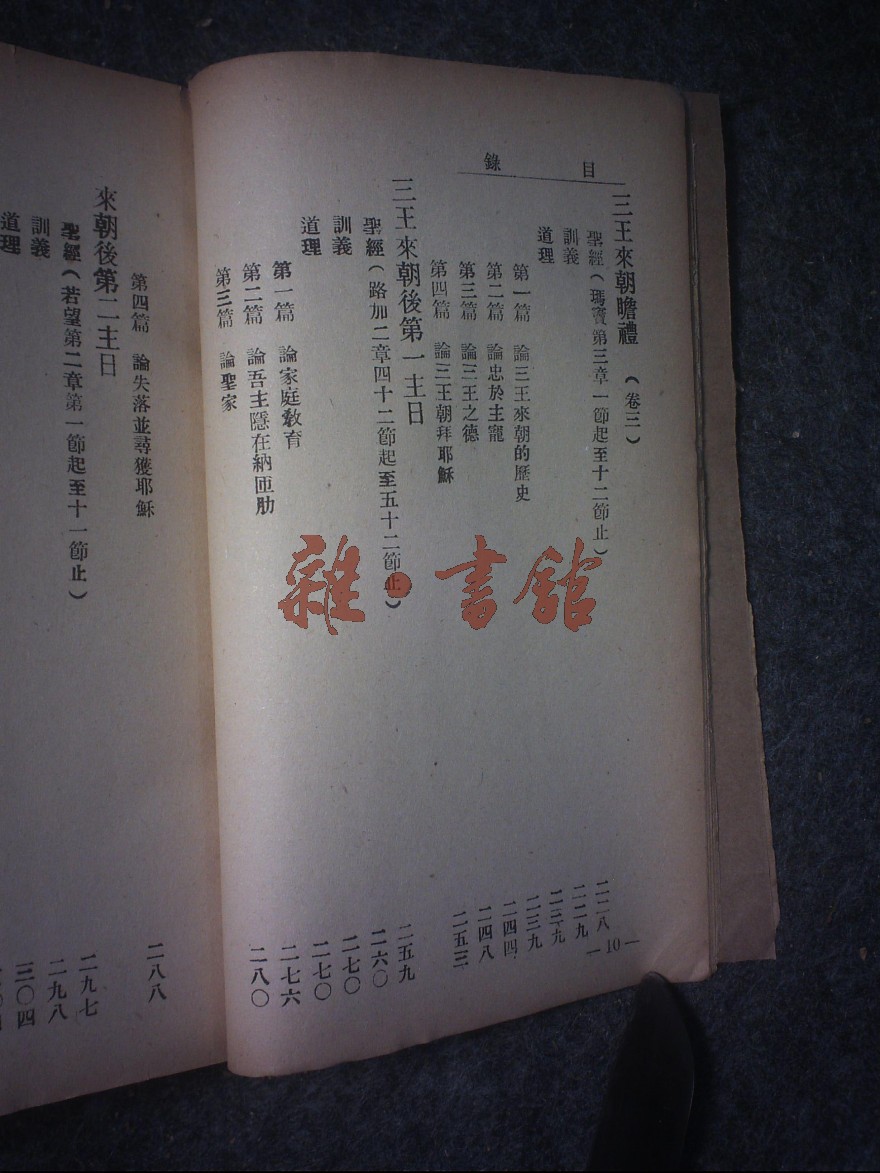 目錄
三王來朝瞻禮 (卷三)
聖經(瑪竇第三章一節起至十二節止) 二二八
訓義 二二九
道理 二三九
第一篇 論三王來朝的歷史 二三九
第二篇 論忠於主寵 二四四
第三篇 論三王之德 二四八
第四篇 論三王朝拜耶穌 二五三
三王來朝後第一主日 二五九
聖經(路加二章四十二節起至五十二節止) 二六〇
訓義 二七〇
道理 二七〇
第一篇 論家庭教育 二七六
第二篇 論吾主隱在納匝肋 二八〇
第三篇 論聖家
—10—
第四篇 論失落並尋獲耶穌 二八八
來朝後第二主日 二九七
聖經(若望第二章第一節起至十一節止) 二九八
訓義 三〇四
道理
雜·書館